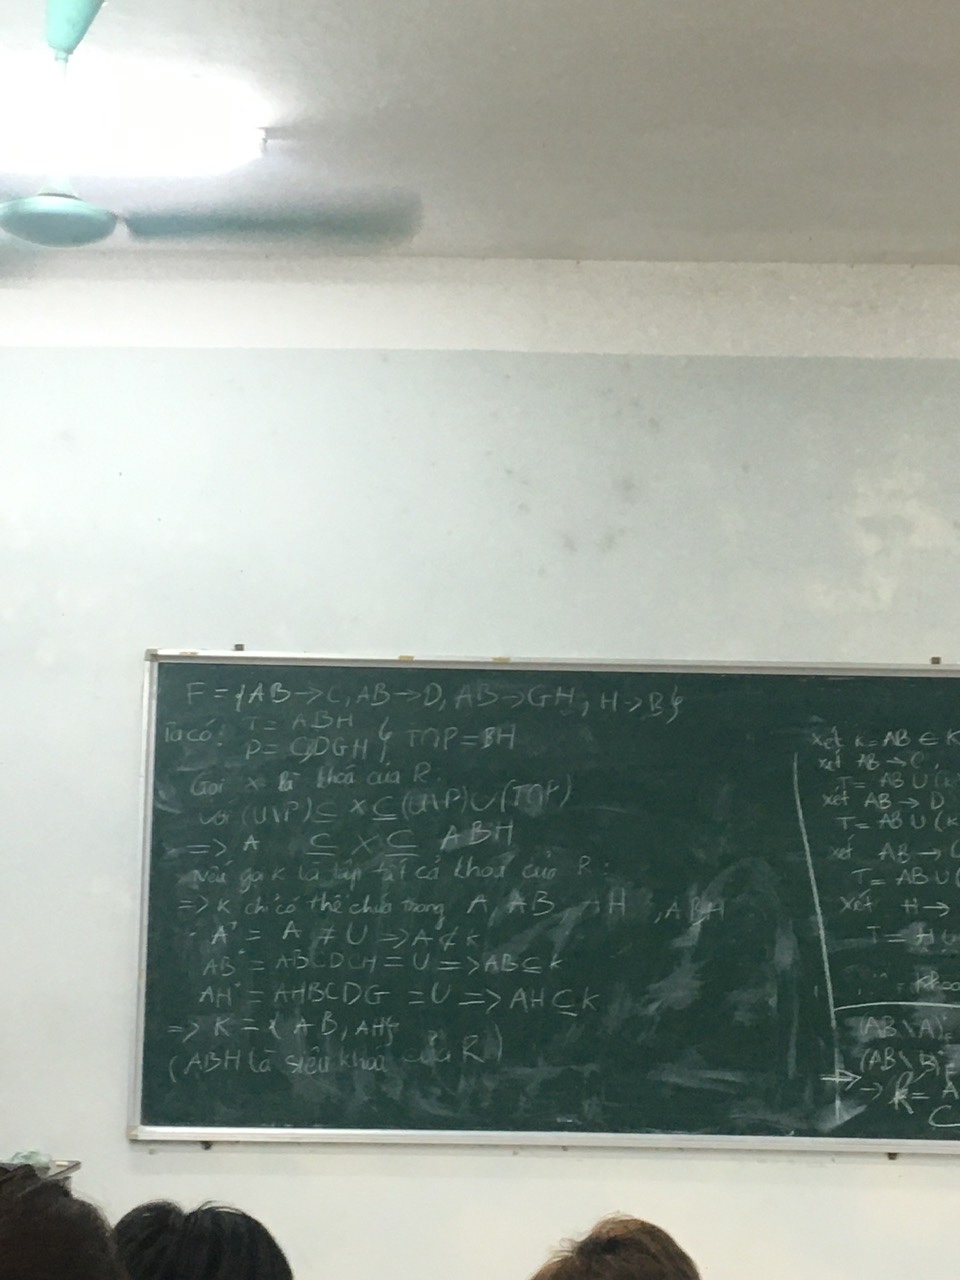 F = {AB → C, AB → D, AB → GH, H → B}
Ta có: T = ABH
P = CDGH } T∩P = BH
Gọi X là khoá của R.
với (U\P) ⊆ X ⊆ (U\P) ∪ (T∩P)
=> A ⊆ X ⊆ ABH
Nếu gọi K là tập tất cả khoá của R:
=> K chỉ có thể chứa trong A, AB, AH, ABH
A⁺ = A ≠ U => A ⊄ K
AB⁺ = ABCDGH = U => AB ⊆ K
AH⁺ = AHBCDG = U => AH ⊆ K
=> K = { AB, AH}
(ABH là siêu khoá của R)
Xét K = AB ∈ K
xét AB → C,
T = AB ∪ (K
xét AB → D
T = AB ∪ (K
xét AB →
T = AB ∪ (
xét H →
T = H ∪
(AB\A)⁺
(AB\B)⁺
→ K = A
C